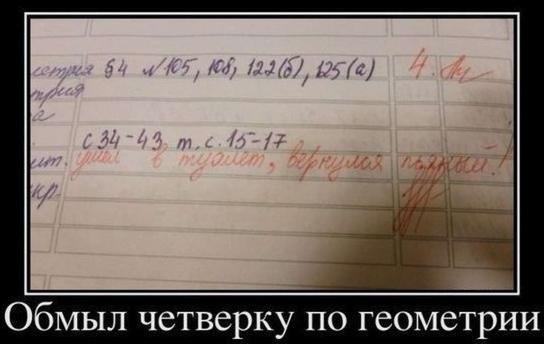 §4 №105, 108, 122(б), 125(а) 4.
трия
а
с 34-43 т. с. 15-17
ушел в туалет, вернулся пьяный!
Обмыл четверку по геометрии